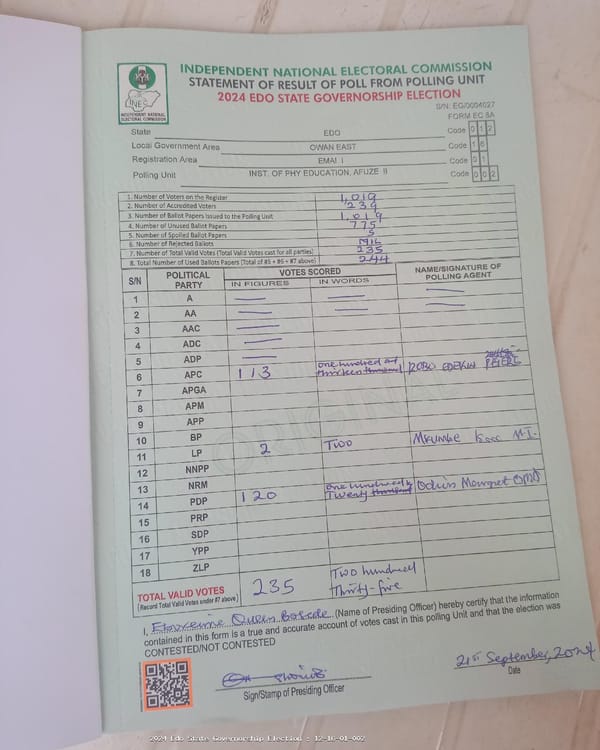 INDEPENDENT NATIONAL ELECTORAL COMMISSION
STATEMENT OF RESULT OF POLL FROM POLLING UNIT
2024 EDO STATE GOVERNORSHIP ELECTION
INEC
INDEPENDENT NATIONAL ELECTORAL COMMISSION
S/N: EG/0004027
FORM EC 8A
State EDO Code 0 1 2
Local Government Area OWAN EAST Code 1 6
Registration Area EMAI I Code 0 1
Polling Unit INST. OF PHY EDUCATION, AFUZE II Code 0 0 2
1. Number of Voters on the Register 1,019
2. Number of Accredited Voters 239
3. Number of Ballot Papers Issued to the Polling Unit 1,019
4. Number of Unused Ballot Papers 775
5. Number of Spoiled Ballot Papers
6. Number of Rejected Ballots NIL
7. Number of Total Valid Votes (Total Valid Votes cast for all parties) 235
8. Total Number of Used Ballots Papers (Total of #5 + #6 + #7 above) 244
S/N POLITICAL PARTY VOTES SCORED NAME/SIGNATURE OF POLLING AGENT
IN FIGURES IN WORDS
1 A
2 AA
3 AAC
4 ADC
5 ADP
6 APC 113 one hundred and thirteen thousand
7 APGA
8 APM
9 APP
10 BP
11 LP 2 Two
12 NNPP
13 NRM
14 PDP 120 one hundred & Twenty thousand
15 PRP
16 SDP
17 YPP
18 ZLP
TOTAL VALID VOTES 235 Two hundred Thirty-five
(Record Total Valid Votes under #7 above)
I, Queen (Name of Presiding Officer) hereby certify that the information
contained in this form is a true and accurate account of votes cast in this polling Unit and that the election was
CONTESTED/NOT CONTESTED
Sign/Stamp of Presiding Officer
21st September, 2024
Date
ORIGINAL
2024 Edo State Governorship Election : 12-16-01-002